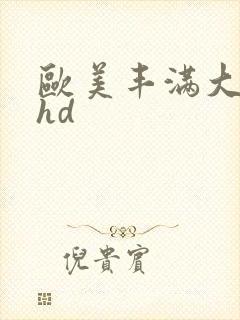 歐美丰滿大
hd
倪貴賓